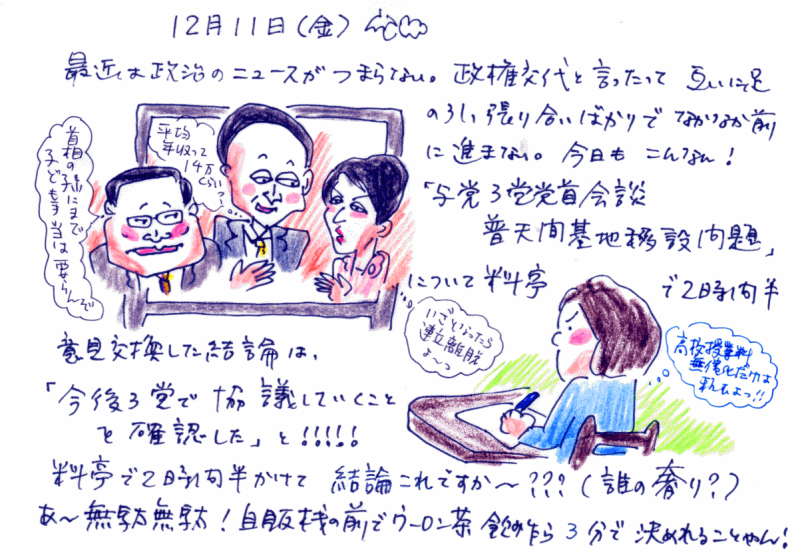 12月11日(金)
最近は政治のニュースがつまらない。政権交代と言ったって 互いに足
のひっ張り合いばかりで なかなか前
に進まない。今日も こんなん!
「与党3党党首会談
普天間基地移設問題」
について料亭で2時間半
首相の孫にまで
子ども手当は要らんぞ
平均
年収って
14万
くらい?
いざとなったら
連立離脱
よーっ
高校授業料
無償化だけは
頼むよっ!!
意見交換した結論は、
「今後3党で 協議していくこと
を確認した」と!!!!!
料亭で2時間半かけて 結論これですか〜???(誰の奢り?)
あ〜無駄無駄!自販機の前でウーロン茶 飲みながら 3分で 決めれることやん!